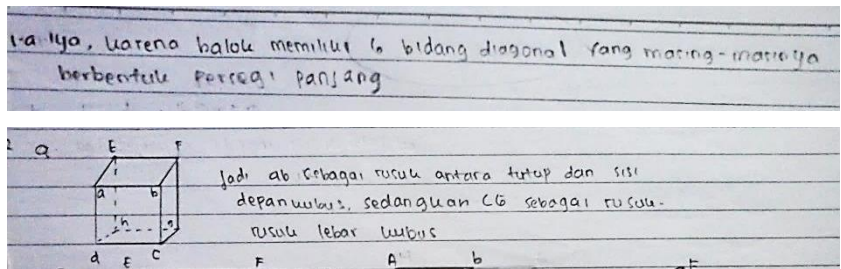 1.a Iya, karena balok memiliki 6 bidang diagonal yang masing-masingnya
berbentuk persegi panjang
2 a
E F
a b
h g
d c
Jadi ab sebagai rusuk antara tutup dan sisi
depan kubus, sedangkan CG sebagai rusuk-
rusuk lebar kubus
E F A b E